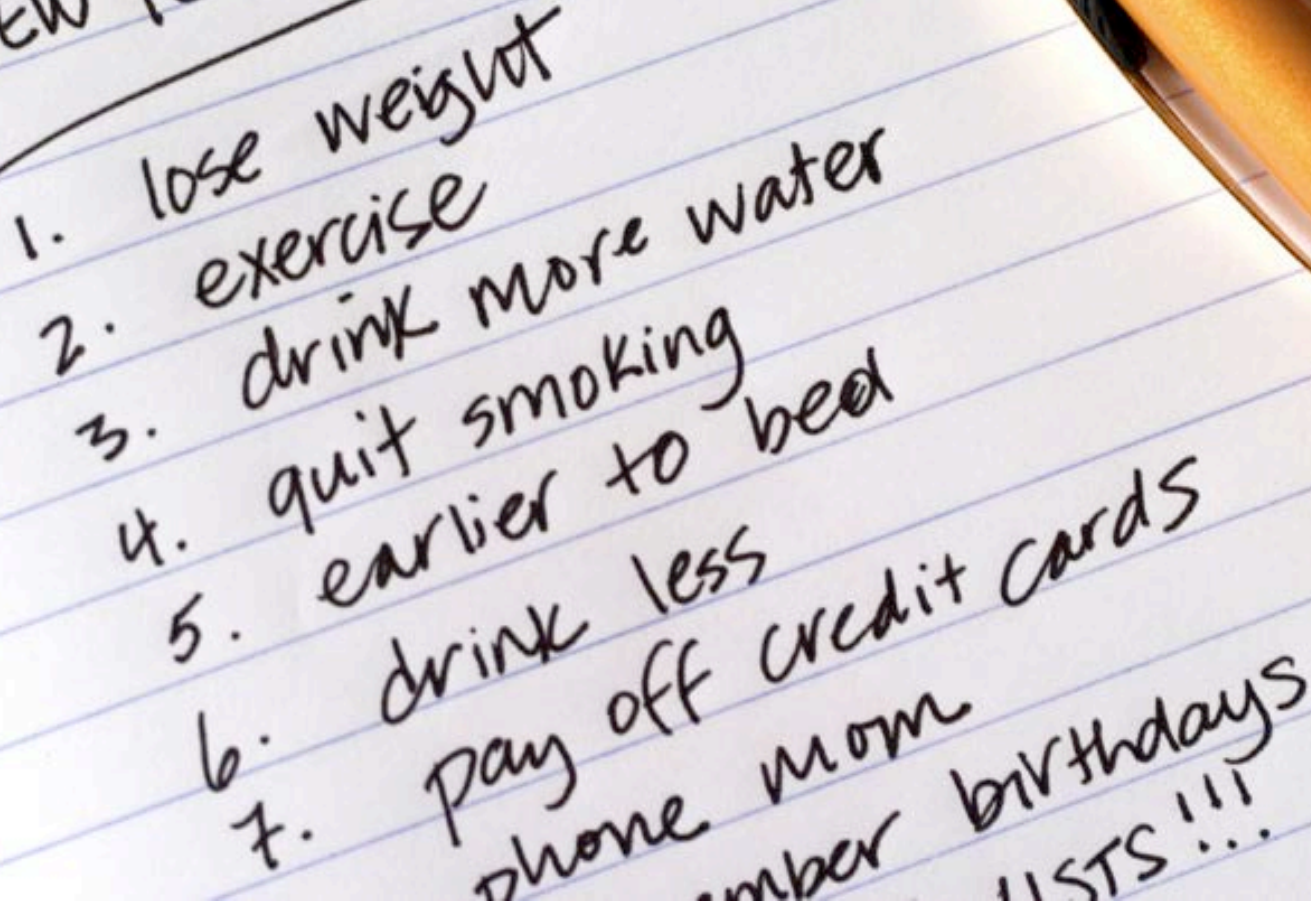 1. lose weight
2. exercise
3. drink more water
4. quit smoking
5. earlier to bed
6. drink less
7. pay off credit cards
phone mom
birthdays